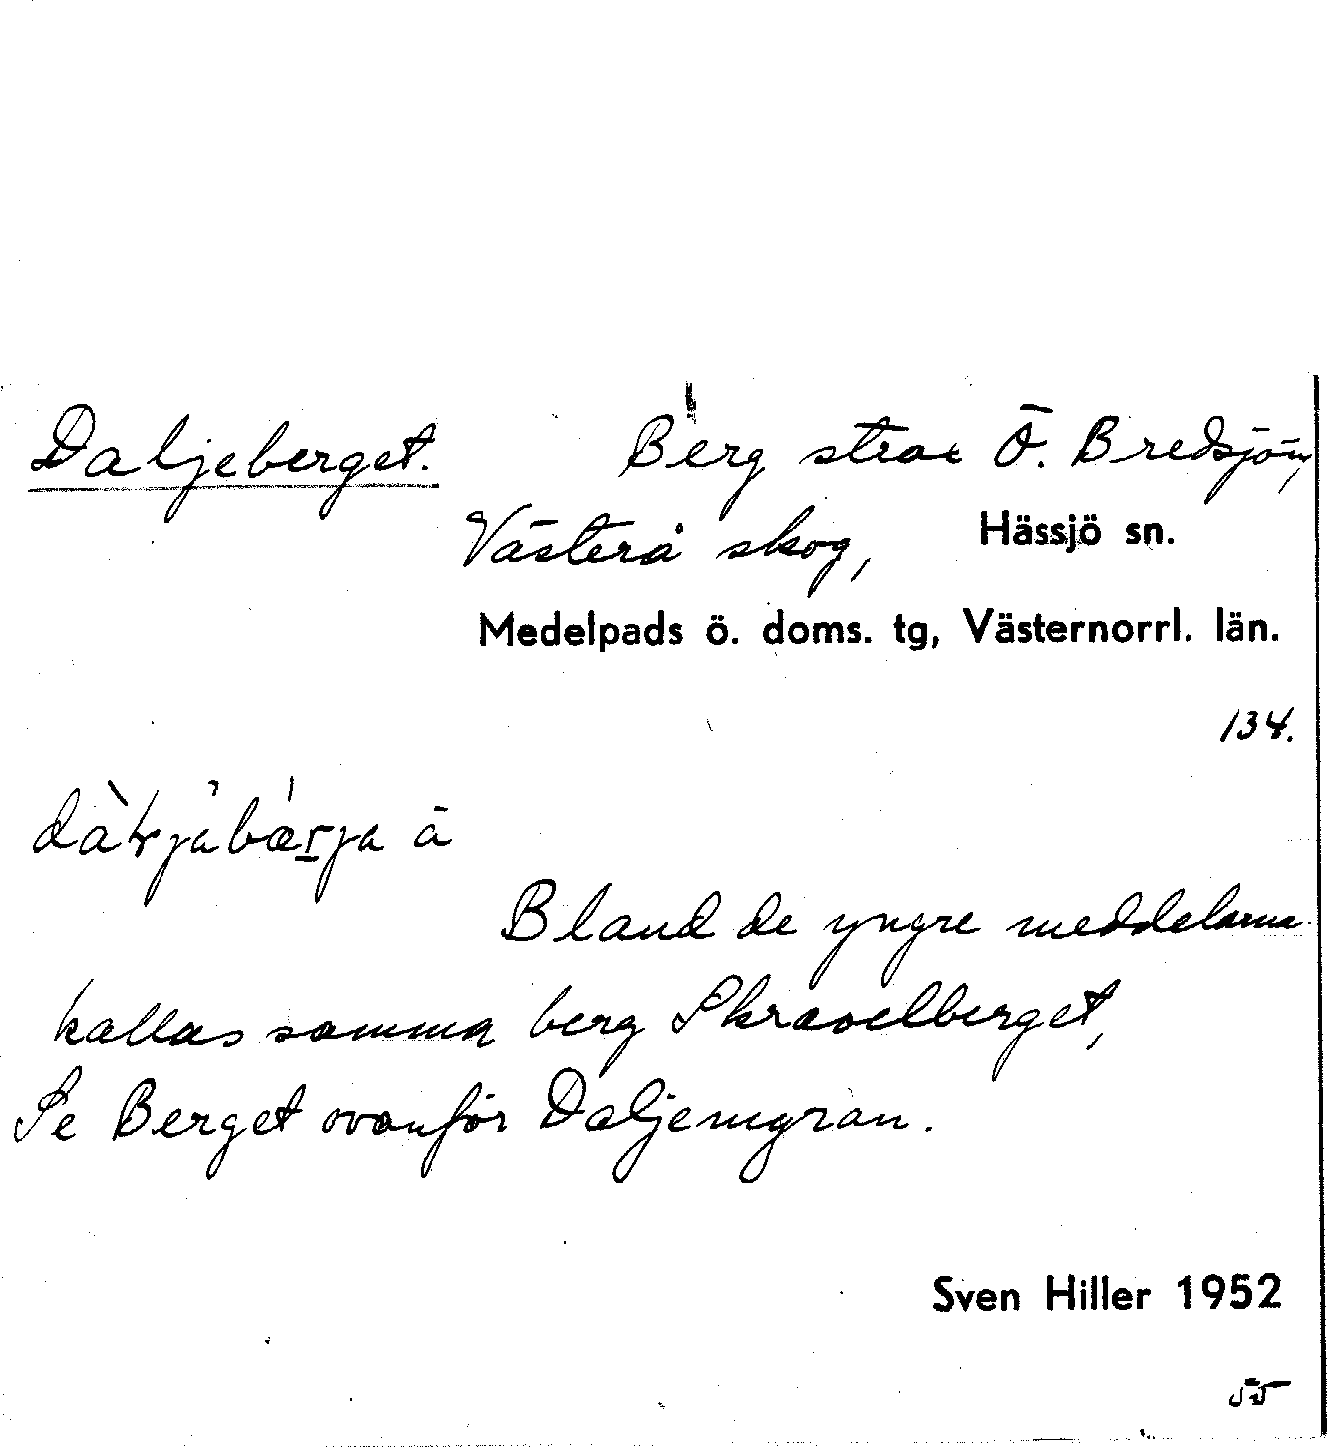 Daljeberget. Berg strax Ö. Bredsjön,
Västerå skog, Hässjö sn.
Medelpads ö. doms. tg, Västernorrl. län.
134.
å
Bland de yngre meddelarna
kallas samma berg Skravelberget,
Se Berget ovanför Daljemyran.
Sven Hiller 1952